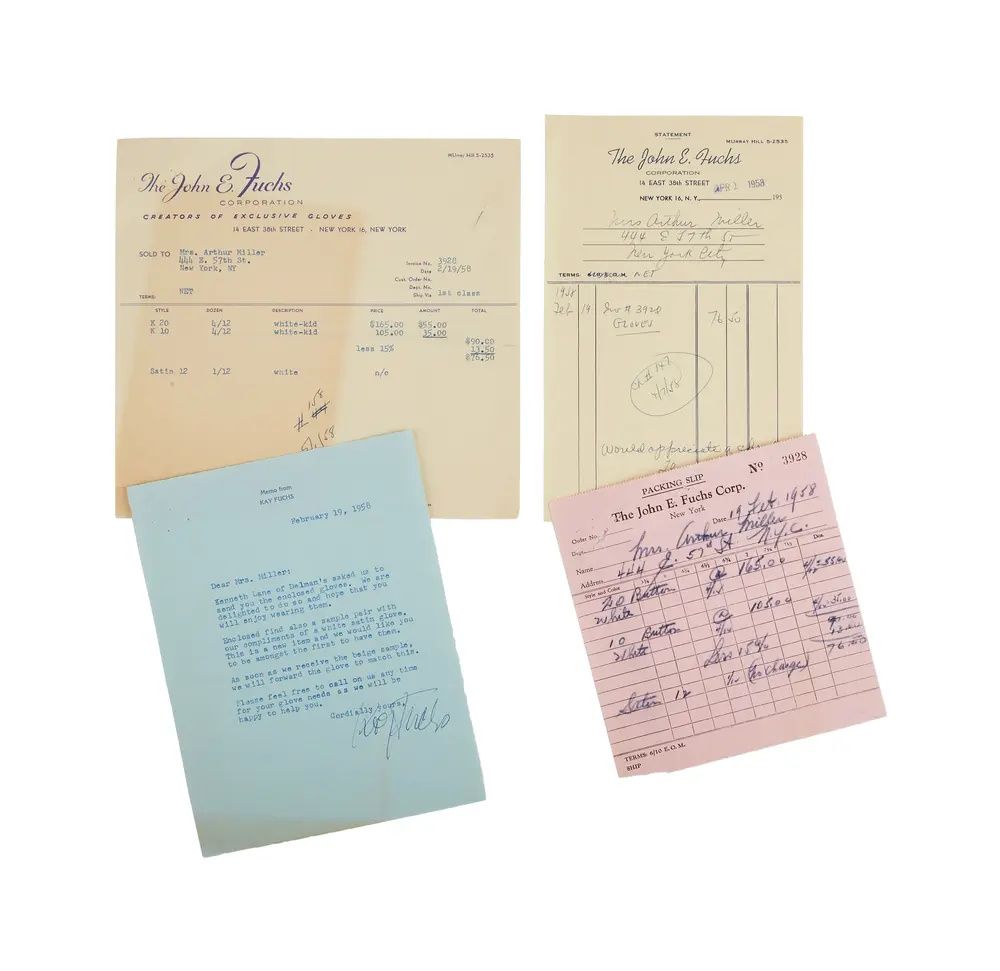 MUrray Hill 5-2535
The John E. Fuchs
CORPORATION
CREATORS OF EXCLUSIVE GLOVES
14 EAST 38th STREET - NEW YORK 16, NEW YORK
SOLD TO Mrs. Arthur Miller
444 E. 57th St.
New York, NY
Invoice No. 3928
Date 2/19/58
Cust. Order No.
Dept. No.
Ship Via 1st class
TERMS: NET
STYLE DOZEN DESCRIPTION PRICE AMOUNT TOTAL
K 20 4/12 white-kid $165.00 $55.00
K 10 4/12 white-kid 105.00 35.00
$90.00
less 15% 13.50
$76.50
Satin 12 1/12 white n/c
STATEMENT
MURRAY HILL 5-2535
The John E. Fuchs
CORPORATION
14 EAST 38th STREET
APR 1 1958
NEW YORK 16, N. Y., 195
Mrs Arthur Miller
444 E 57th St
New York City
TERMS: NET
1958
Feb 19 Inv # 3928 76 50
GLOVES
Ch # 147
4/7/58
Would appreciate a
Memo from
KAY FUCHS
February 19, 1958
Dear Mrs. Miller:
Kenneth Lane of Delman's asked us to
send you the enclosed gloves. We are
delighted to do so and hope that you
will enjoy wearing them.
Enclosed find also a sample pair with
our compliments of a white satin glove.
This is a new item and we would like you
to be amongst the first to have them.
As soon as we receive the beige sample,
we will forward the glove to match this.
Please feel free to call on us any time
for your glove needs as we will be
happy to help you.
Cordially yours,
Kay Fuchs
PACKING SLIP
Nº 3928
The John E. Fuchs Corp.
New York
Order No. Date 19 Feb. 1958
Dept.
Name Mrs. Arthur Miller
Address 444 E. 57th St N.Y.C.
Style and Color Doz.
20 Button @ 165.00 4/12 55.00
White 4/12
10 Button @ 105.00 4/12 35.00
White 4/12
Less 15%
Satin 12 1/12 (No Charge)
TERMS: 6/10 E.O.M.
SHIP